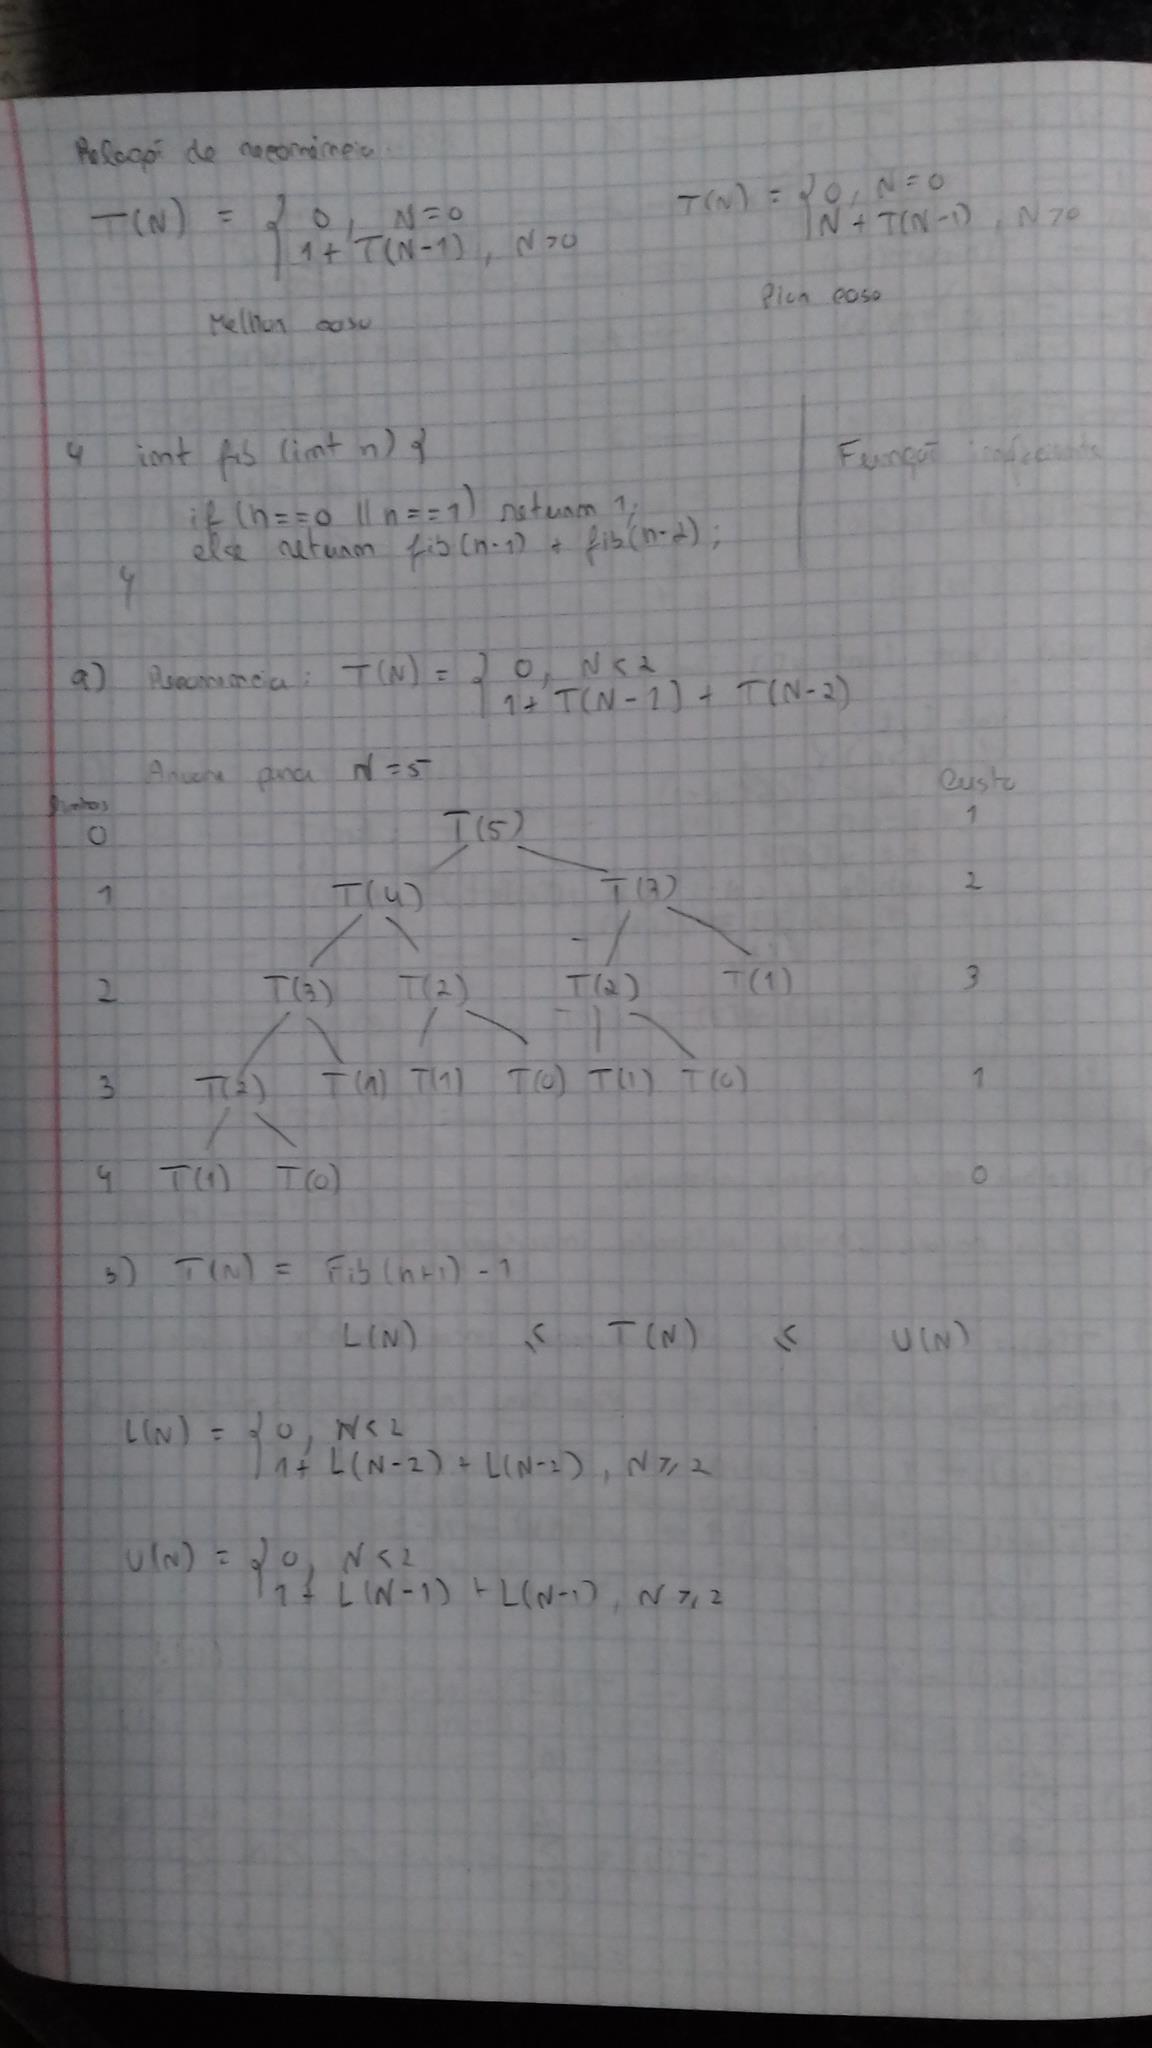 Relação de recorrência
T(N) = { 0, N=0
1+ T(N-1), N>0
Melhor caso
T(N) = { 0, N=0
N + T(N-1), N>0
Pior caso
4 int fib (int n) {
if (n==0 || n==1) return 1;
else return fib(n-1) + fib(n-2);
}
Função ineficiente
a) Recorrência: T(N) = { 0, N<2
1+ T(N-1) + T(N-2)
Árvore para N=5
Custo
0 T(5) 1
1 T(4) T(3) 2
2 T(3) T(2) T(2) T(1) 3
3 T(2) T(1) T(1) T(0) T(1) T(0) 1
4 T(1) T(0) 0
b) T(N) = Fib(n+1) - 1
L(N) ≤ T(N) ≤ U(N)
L(N) = { 0, N<2
1+ L(N-2) + L(N-2), N≥2
U(N) = { 0, N<2
1+ L(N-1) + L(N-1), N≥2